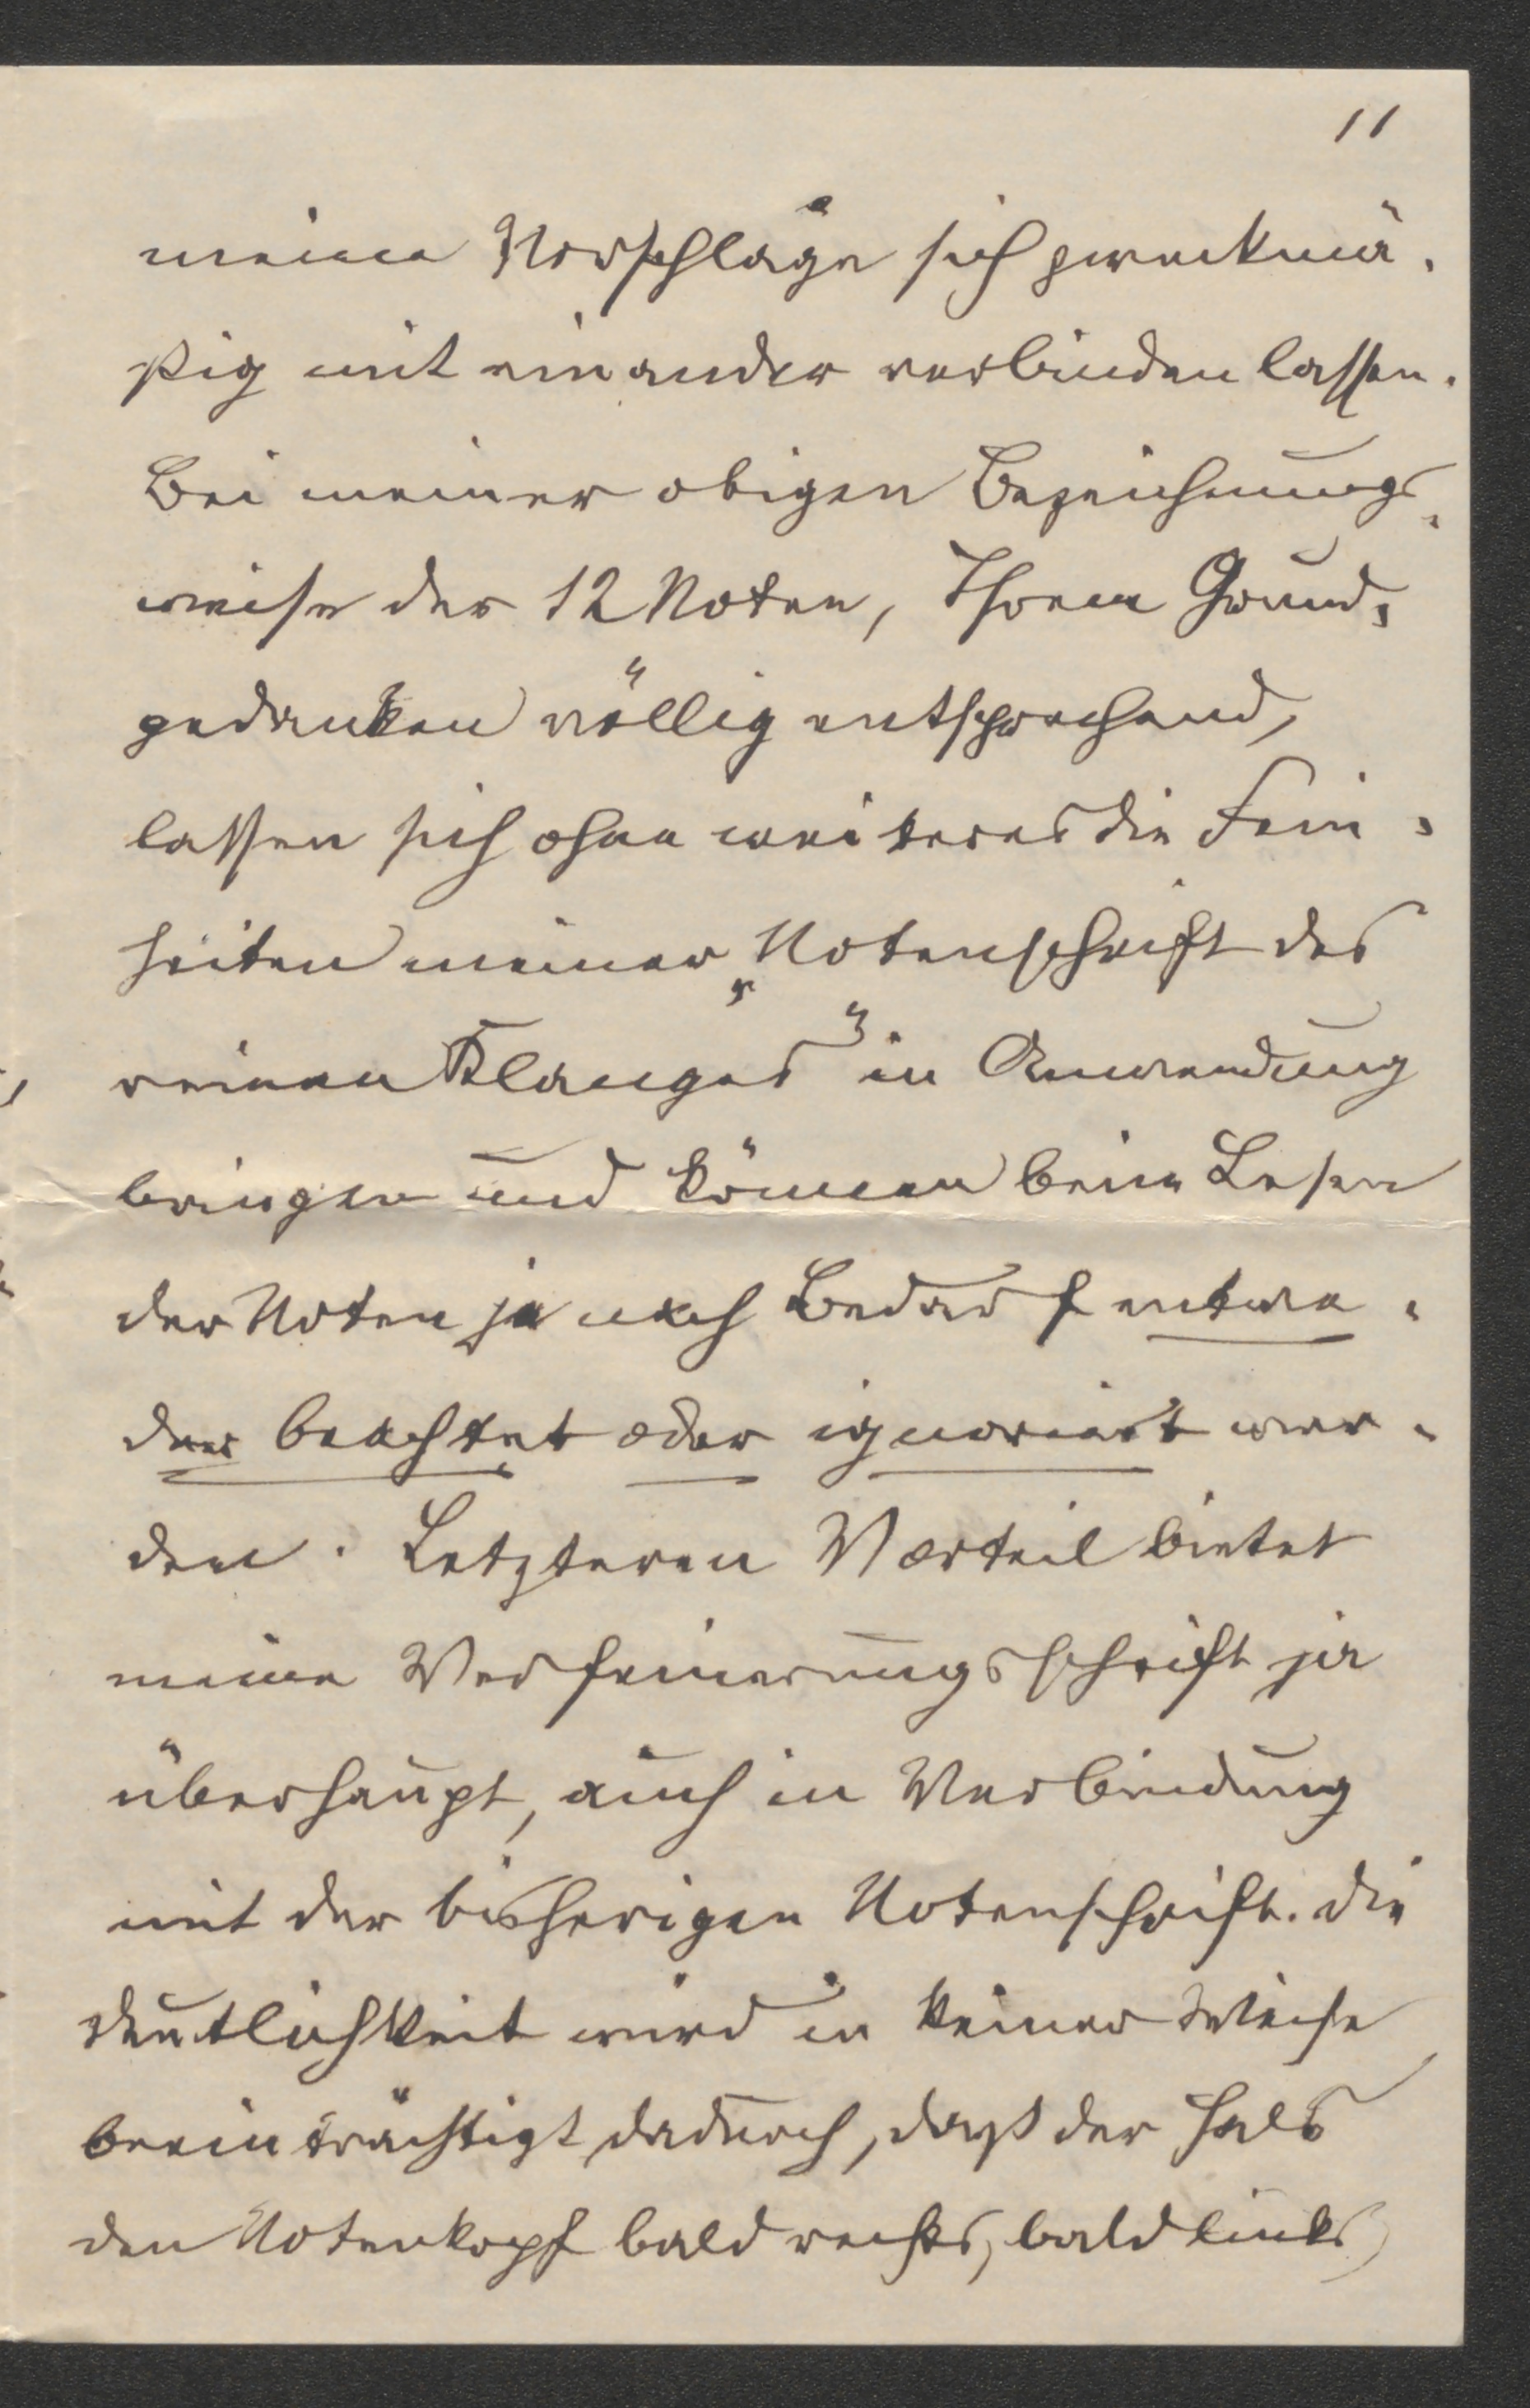 11
meine Vorschläge sich zweckmä-
ßig mit einander verbinden lassen.
Bei meiner obigen Bezeichnungs-
weise der 12 Noten, Ihrem Grund-
gedanken völlig entsprechend,
lassen sich ohne weiteres die Fein-
heiten meiner „Notenschrift des
reinen Klanges“ in Anwendung
bringen und können beim Lesen
der Noten je nach Bedarf entwe-
der beachtet oder ignoriert wer-
den. Letzteren Vorteil bietet
meine Verfeinerungsschrift ja
überhaupt, auch in Verbindung
mit der bisherigen Notenschrift. Die
Deutlichkeit wird in keiner Weise
beeinträchtigt dadurch, daß der Hals
den Notenkopf bald rechts, bald links